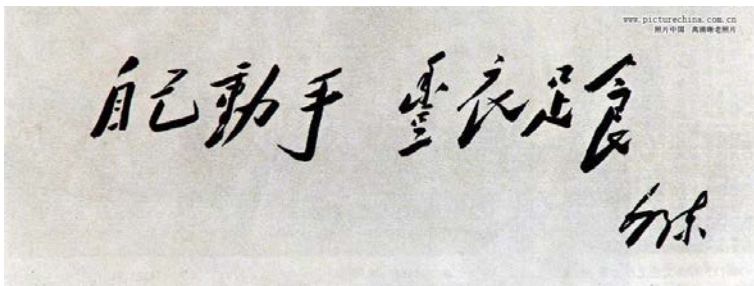 www.picturechina.com.cn
照片中国·高清晰老照片
自己動手 豐衣足食